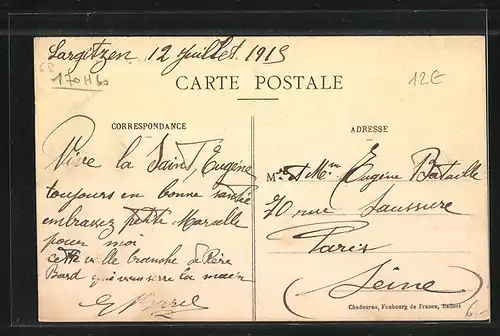 Largitzen 12 Juillet 1915
68
170H60
12€
CARTE POSTALE
CORRESPONDANCE
Vive la Saint Eugène
toujours en bonne santée
embrassez petite Marcelle
pour moi
cette ville branche de Père
Bard qui vous serre la main
ADRESSE
Mr et Mme Eugène Bataille
70 rue Saussure
Paris
(Seine)
Chadourne, Faubourg de France, Belfort
6.-